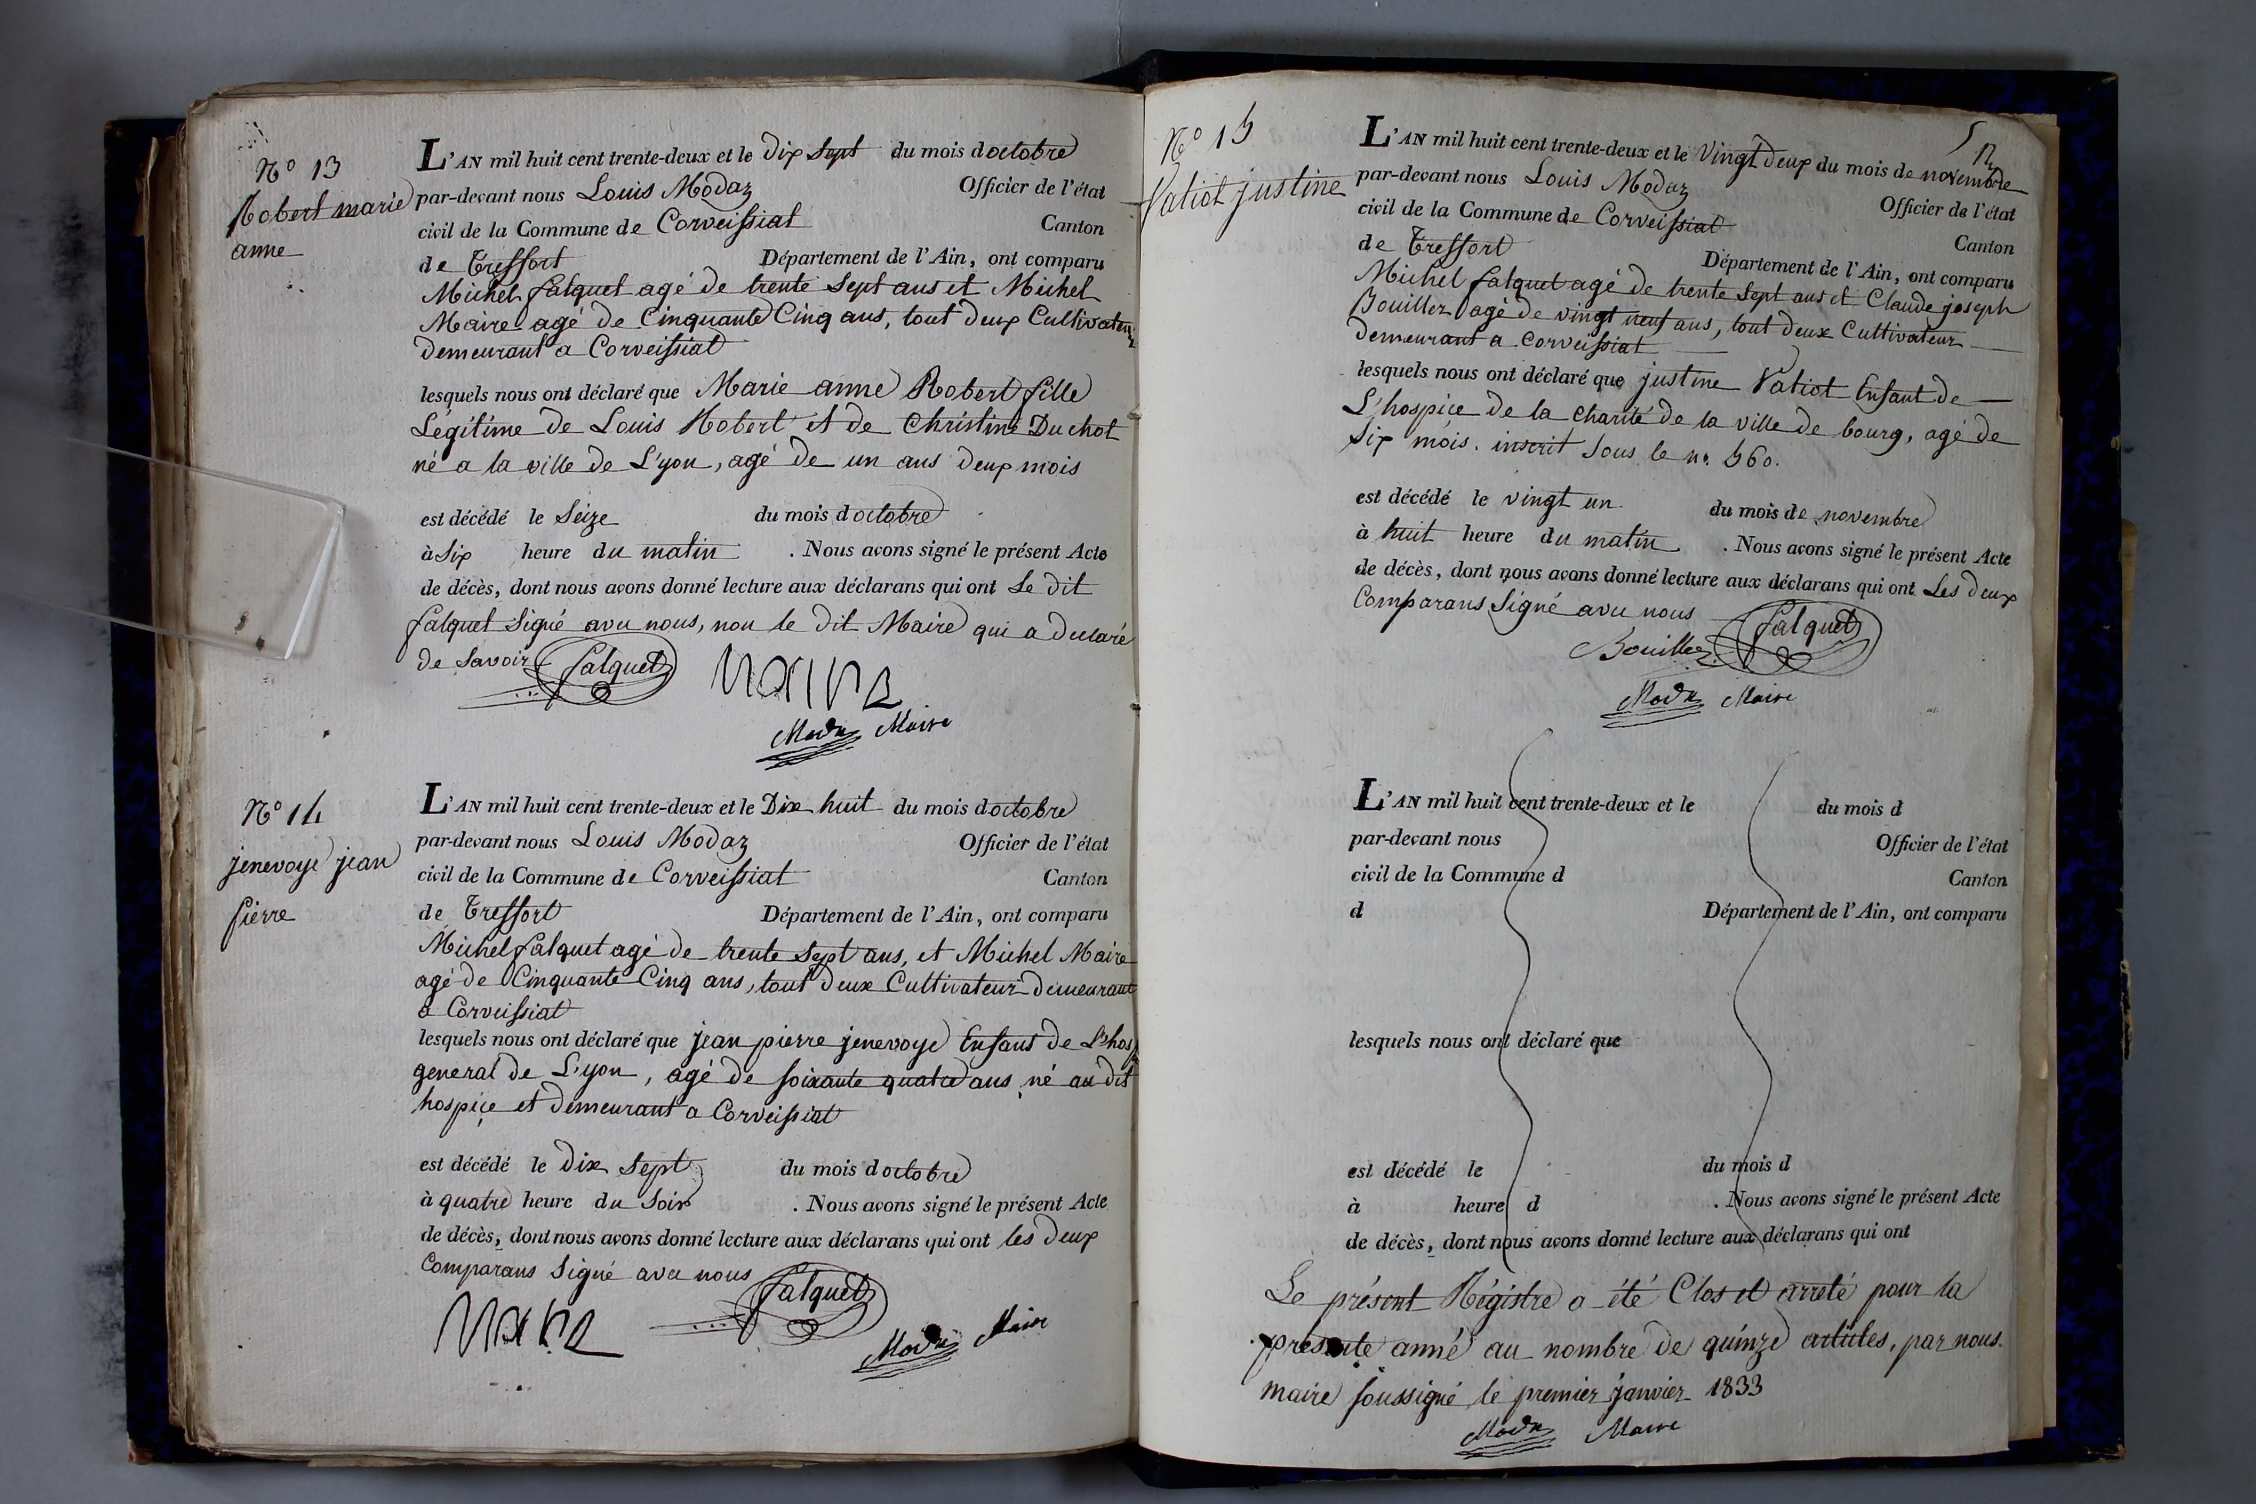 N° 13
Robert marie
anne
L'AN mil huit cent trente-deux et le dix sept du mois d octobre
par-devant nous Louis Modaz Officier de l'état
civil de la Commune de Corveissiat Canton
de Treffort Département de l'Ain, ont comparu
Michel falquet agé de trente sept ans et Michel
Maire agé de Cinquante Cinq ans, tout deux Cultivateur
demeurant a Corveissiat
lesquels nous ont déclaré que Marie anne Robert fille
Légitime de Louis Robert et de Christine Duchot
né a la ville de L'yon, agé de un ans deux mois
est décédé le Seize du mois d octobre
à Six heure du matin . Nous avons signé le présent Acte
de décès, dont nous avons donné lecture aux déclarans qui ont Le dit
falquet Signé avec nous, non le dit Maire qui a declaré
de Savoir falquet
Modaz Maire
N° 14
jenevoye jean
pierre
L'AN mil huit cent trente-deux et le Dix huit du mois d octobre
par-devant nous Louis Modaz Officier de l'état
civil de la Commune de Corveissiat Canton
de Treffort Département de l'Ain, ont comparu
Michel falquet agé de trente sept ans, et Michel Maire
agé de Cinquante Cinq ans, tout deux Cultivateur demeurant
a Corveissiat
lesquels nous ont déclaré que jean pierre jenevoye Enfant de L'hosp
general de L'yon, agé de soixante quatre ans né au dit
hospice et demeurant a Corveissiat
est décédé le Dix sept du mois d octobre
à quatre heure du Soir . Nous avons signé le présent Acte
de décès, dont nous avons donné lecture aux déclarans qui ont les deux
Comparans Signé avec nous
falquet
Modaz Maire
N° 15
Vatiot justine
L'AN mil huit cent trente-deux et le Vingt deux du mois de novembre
par-devant nous Louis Modaz Officier de l'état
civil de la Commune de Corveissiat Canton
de Treffort Département de l'Ain, ont comparu
Michel falquet agé de trente Sept ans et Claude joseph
Bouillez agé de vingt neuf ans, tout deux Cultivateur
demeurant a corveissiat
lesquels nous ont déclaré que justine Vatiot Enfant de
L'hospice de la charité de la ville de bourg, agé de
Six mois. inscrit Sous le n°. 560.
est décédé le vingt un du mois de novembre
à huit heure du matin . Nous avons signé le présent Acte
de décès, dont nous avons donné lecture aux déclarans qui ont Les deux
Comparans Signé avec nous falquet
Bouillez
Modaz Maire
L'AN mil huit cent trente-deux et le du mois d
par-devant nous Officier de l'état
civil de la Commune d Canton
d Département de l'Ain, ont comparu
lesquels nous ont déclaré que
est décédé le du mois d
à heure d . Nous avons signé le présent Acte
de décès, dont nous avons donné lecture aux déclarans qui ont
Le présent Régistre a été Clos et arreté pour la
présente anné au nombre de quinze articles, par nous
maire soussigné le premier janvier 1833
Modaz Maire